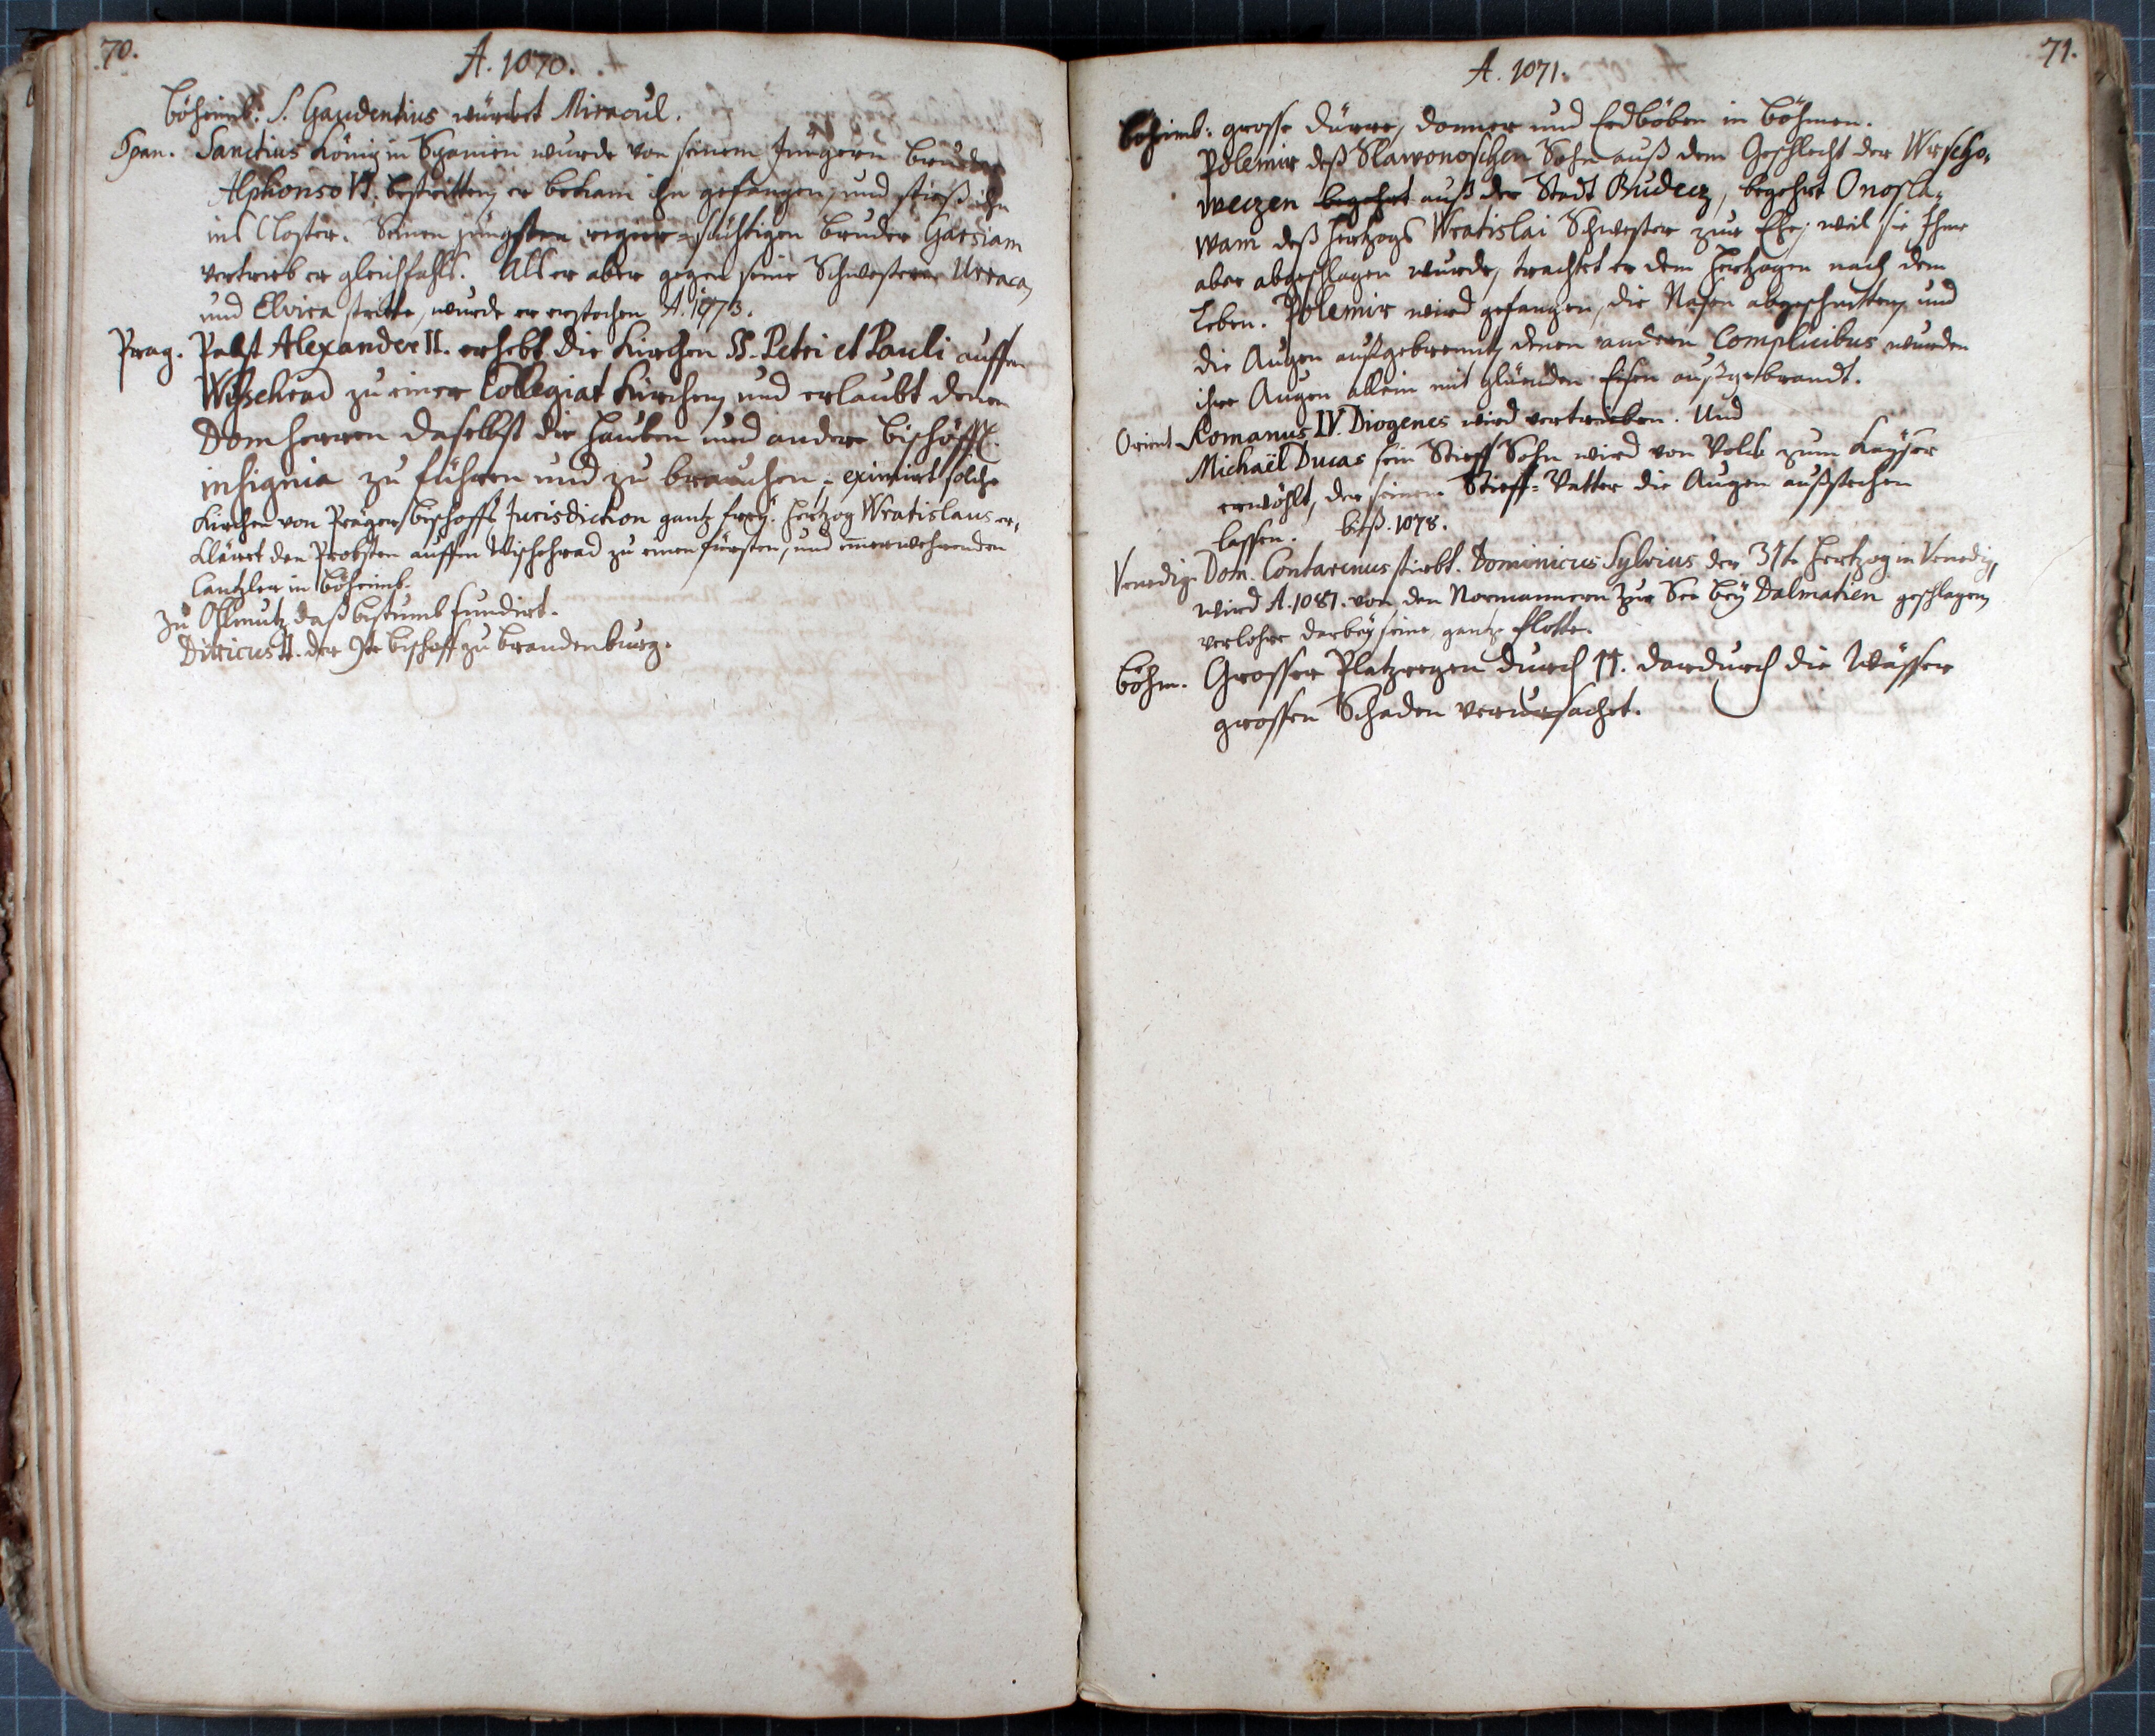 70.
A. 1070.
Böheimb. S. Gaudentius würcket Miracul.
Span. Sanctius König in Spanien wurde von seinem Jüngern Bruder
Alphonso VI. bestritten, er bekam ihn gefangen, und stieß ihn
ins Closter. Seinen jüngsten regier-süchtigen Bruder Garsiam
vertrieb er gleichfahls. Alß er aber gegen seine Schwestern Urraca,
und Elvira stritte, wurde er erstochen A. 1073.
Prag. Pabst Alexander II. erhebt die Kirchen SS. Petri et Pauli auffm
Wischerad zu einer Collegiat Kirchen, und erlaubt denen
Domherren daselbst die Hauben und andere Bischöffl.
insignia zu führen und zu brauchen, eximirt solche
Kirchen von Prager Bischoffs Jurisdiction gantz frey. Hertzog Wratislaus er,
kläret den Probsten auffm Wischehrad zu einen Fürsten, und immerwehrenden
Cantzler in Böheimb.
Zu Ollmutz daß Bistumb fundirt.
Ditricus II. der 9te Bischoff zu Brandenburg.
71.
A. 1071.
Böheimb: grosse Dürre, Donner und Erdböben in Böhmen.
Polemir deß Slawonoschen Sohn auß dem Geschlecht der Wrscho,
weczen begehrt auß der Stadt Budecz, begehrt Onosla,
wam deß Hertzogs Wratislai Schwester zur Ehe; weil sie Ihme
aber abgeschlagen wurde, trachtet er dem Hertzogen nach dem
Leben. Polemir wird gefangen, die Nasen abgeschnitten, und
die Augen außgebrennt, denen andern Complicibus wurden
ihre Augen allein mit glüenden Eisen außgebrandt.
Orient Romanus IV. Diogenes wird vertrieben. Und
Michaël Ducas sein Stieff Sohn wird von Volck zum Kayser
erwöhlt, der seinen Stieff-Vatter die Augen außstechen
lassen. biß. 1078.
Venedig. Dom. Contarenus stirbt. Dominicus Sylvius der 31te Hertzog in Venedig,
wird A. 1081. von den Normannern zur See bey Dalmatien geschlagen,
verlohre darbey seine gantze Flotte.
Böhm. Grosser Platzregen durch 14. dardurch die Wässer
grossen Schaden verursachet.